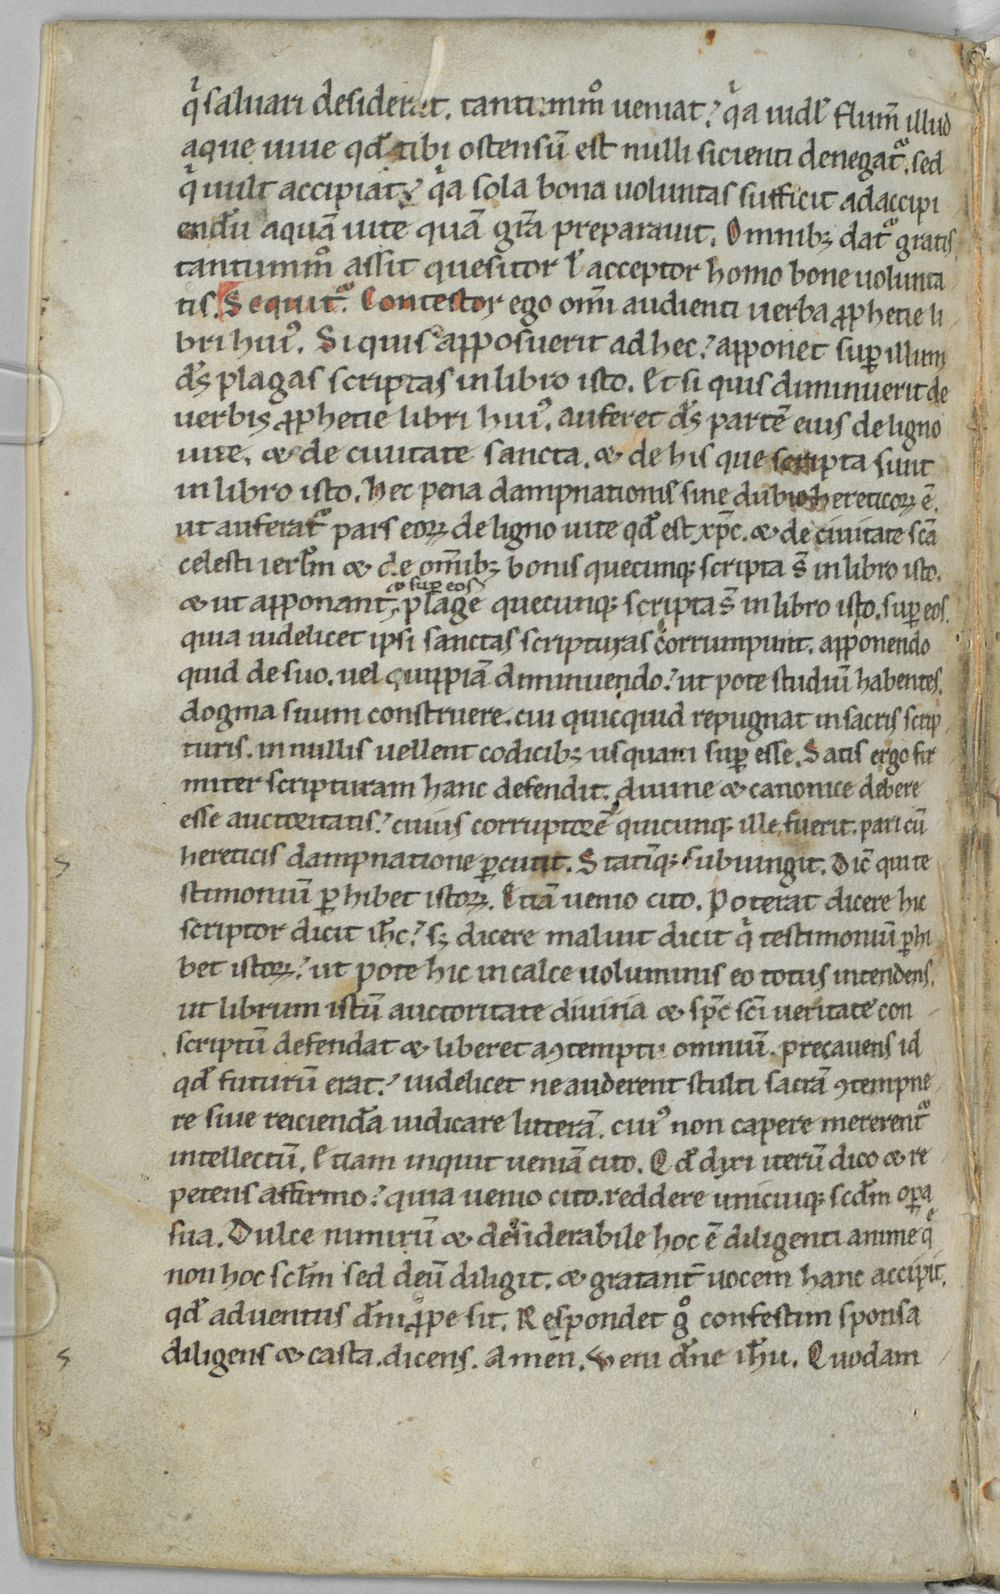 qͥ saluari desiderat. tantummͦ ueniat? qͣa uidl̕ flum̄ illud
aque uiue qđ tibi ostensū est nulli sicienti denegat᷑. sed
qͥ uult accipiat? qͣa sola bona uoluntas sufficit ad accipi
endū aquā uite quā grā preparauit. Omnibꝫ dat᷑ gratis.
tantummͦ assit quesitor ł acceptor homo bone uolunta
tis. Sequit᷑. Contestor ego om̄i audienti uerba ꝓphetie li
bri huiꝰ. Si quis apposuerit ad hec? apponet suꝑ illum
dꝰs plagas scriptas in libro isto. Et si quis diminuerit de
uerbis ꝓphetie libri huiꝰ. auferet ds̄ partē eius de ligno
uite. & de ciuitate sancta. & de his que scripta sunt
in libro isto. hec pena dampnationis sine dubio hereticoꝝ ē.
ut auferat᷑ pars eoꝝ de ligno uite qđ est xp̄c. & de ciuitate scā
celesti ierłm & de om̄ibꝫ bonis quecunqꝫ scripta s̄ in libro isto.
& suꝑ eos
& ut apponant᷑ plage quecunqꝫ scripta s̄ in libro isto. suꝑ eos.
quia uidelicet ipsi sanctas scripturas corrumpunt. apponendo
quid de suo. uel quippiā diminuendo? ut pote studiū habentes.
dogma suum construere. cui quicquid repugnat in sacris scrip
turis. in nullis uellent codicibꝫ usquam suꝑ esse. Satis ergo fir
miter scripturam hanc defendit. diuine & canonice debere
esse auctoritatis? cuius corruptorē quicunqꝫ ille fuerit. pari cū
hereticis dampnatione ꝑcutit. Statimqꝫ subiungit. Dic̄ qui te
stimoniū ꝑhibet istoꝝ. Etiā uenio cito. Poterat dicere hic
scriptor dicit ih̄c? sꝫ dicere maluit dicit qͥ testimoniū ꝑhi
bet istoꝝ? ut pote hic in calce uoluminis eo totus intendens.
ut librum istū auctoritate diuina & spc̄ sc̄i ueritate con
scriptū defendat & liberet a ꝯtemptu omniū. precauens id
qđ futurū erat? uidelicet ne auderent stulti sacrā ꝯtempne
re siue reiciendā iudicare litterā. cuiꝰ non capere mererent᷑
intellectū. Etiam inquit ueniā cito. Qđ dixi iterū dico & re
petens affirmo? quia uenio cito. reddere unicuiqꝫ scđm oꝑa
sua. Dulce nimirū & desiderabile hoc ē diligenti anime q̄
non hoc sclm̄ sed deū diligit. & gratant᷑ uocem hanc accipit.
qđ aduentus dn̄i ꝓpe sit. Respondet gͦ confestim sponsa
diligens & casta. dicens. Amen. Veni dn̄e ih̄u. Quodam